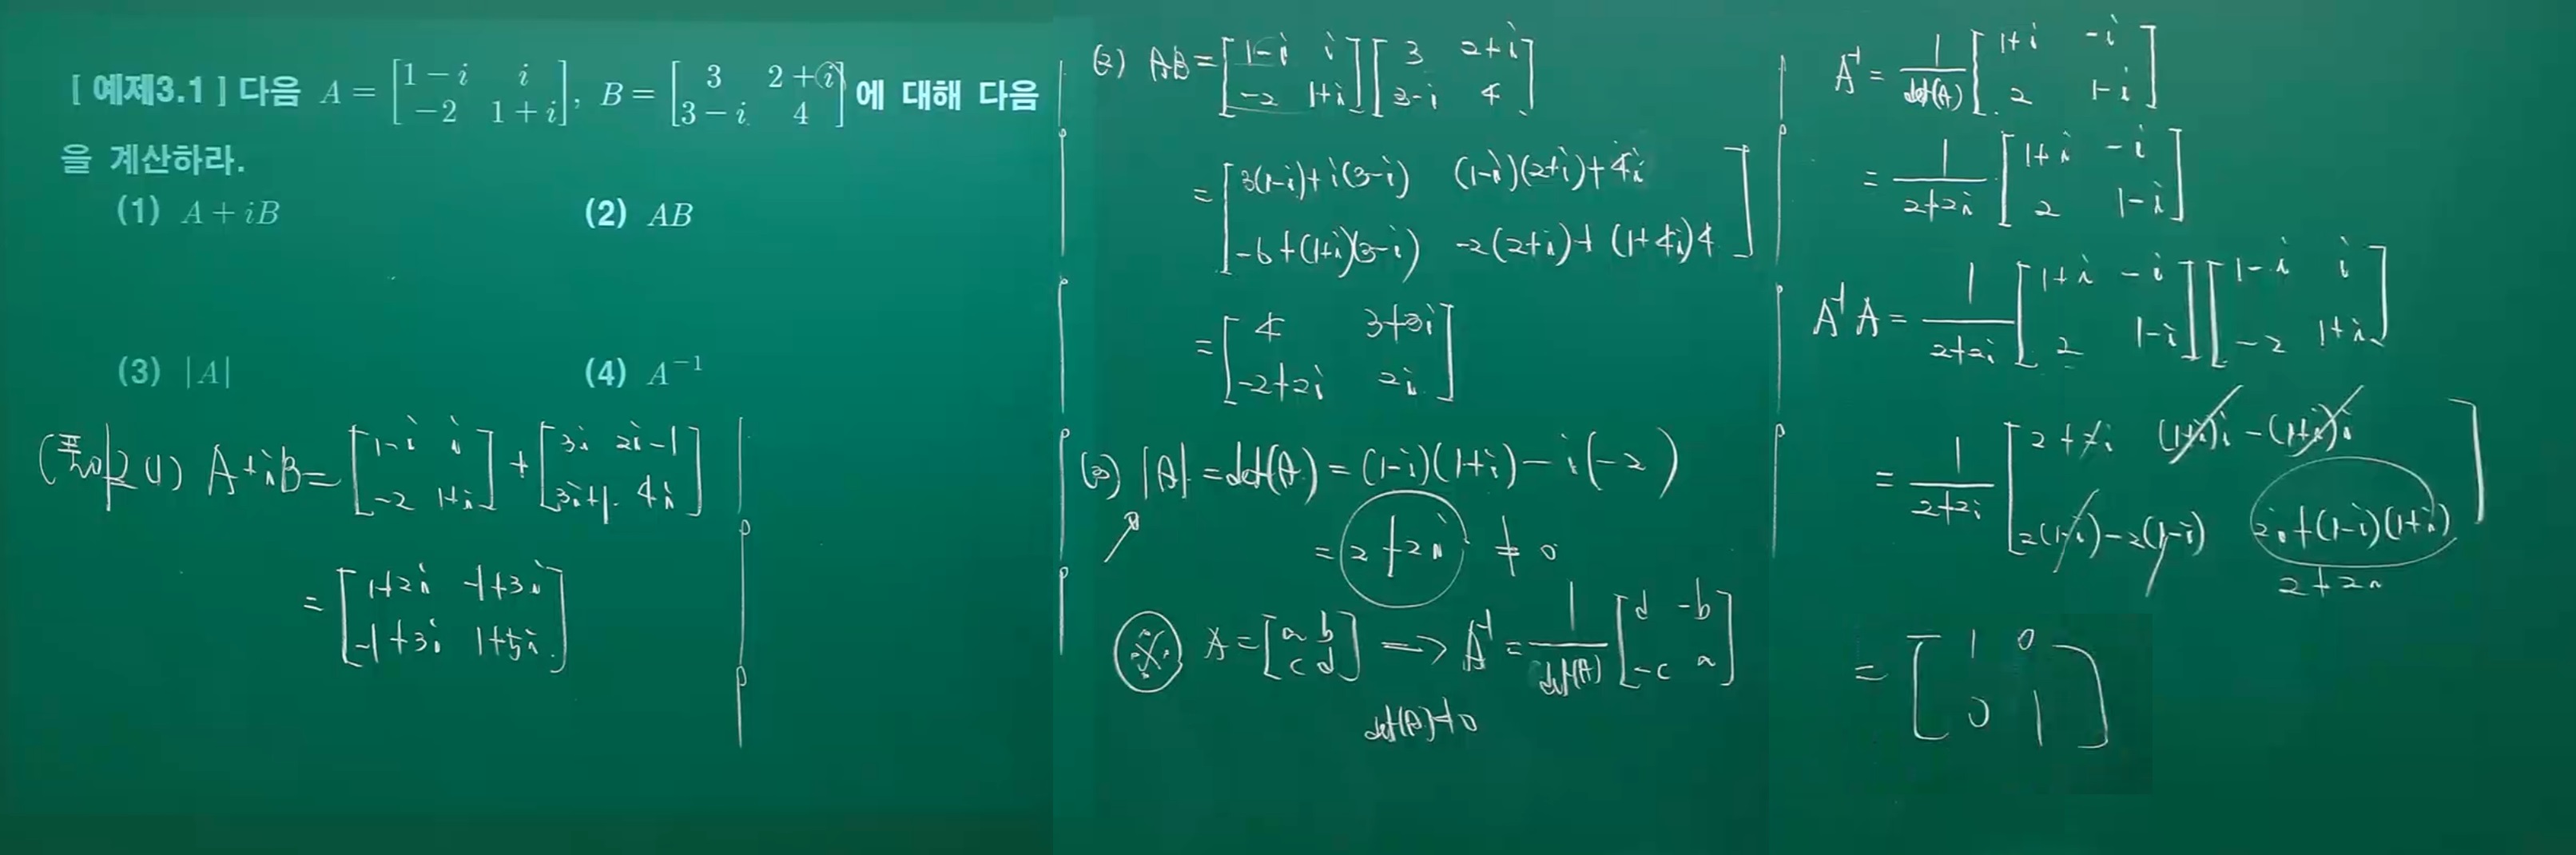 [ 예제3.1 ] 다음 A = [1 − i  i; −2  1 + i], B = [3  2 + i; 3 − i  4] 에 대해 다음
을 계산하라.
(1) A + iB  (2) AB
(3) |A|  (4) A⁻¹
(풀이) (1) A+iB = [1-i  i; -2  1+i] + [3i  2i-1; 3i+1  4i]
= [1+2i  -1+3i; -1+3i  1+5i]
(2) AB = [1-i  i; -2  1+i][3  2+i; 3-i  4]
= [3(1-i)+i(3-i)  (1-i)(2+i)+4i; -6+(1+i)(3-i)  -2(2+i)+(1+4i)4]
= [4  3+3i; -2+2i  2i]
(3) |A| = det(A) = (1-i)(1+i) - i(-2)
= 2+2i ≠ 0
※ A = [a b; c d] => A⁻¹ = 1/det(A) [d  -b; -c  a]
det(A)≠0
A⁻¹ = 1/det(A) [1+i  -i; 2  1-i]
= 1/(2+2i) [1+i  -i; 2  1-i]
A⁻¹A = 1/(2+2i) [1+i  -i; 2  1-i][1-i  i; -2  1+i]
= 1/(2+2i) [2+2i  (1+i)i-(1+i)i; 2(1-i)-2(1-i)  2i+(1-i)(1+i)]
2+2i
= [1  0; 0  1]